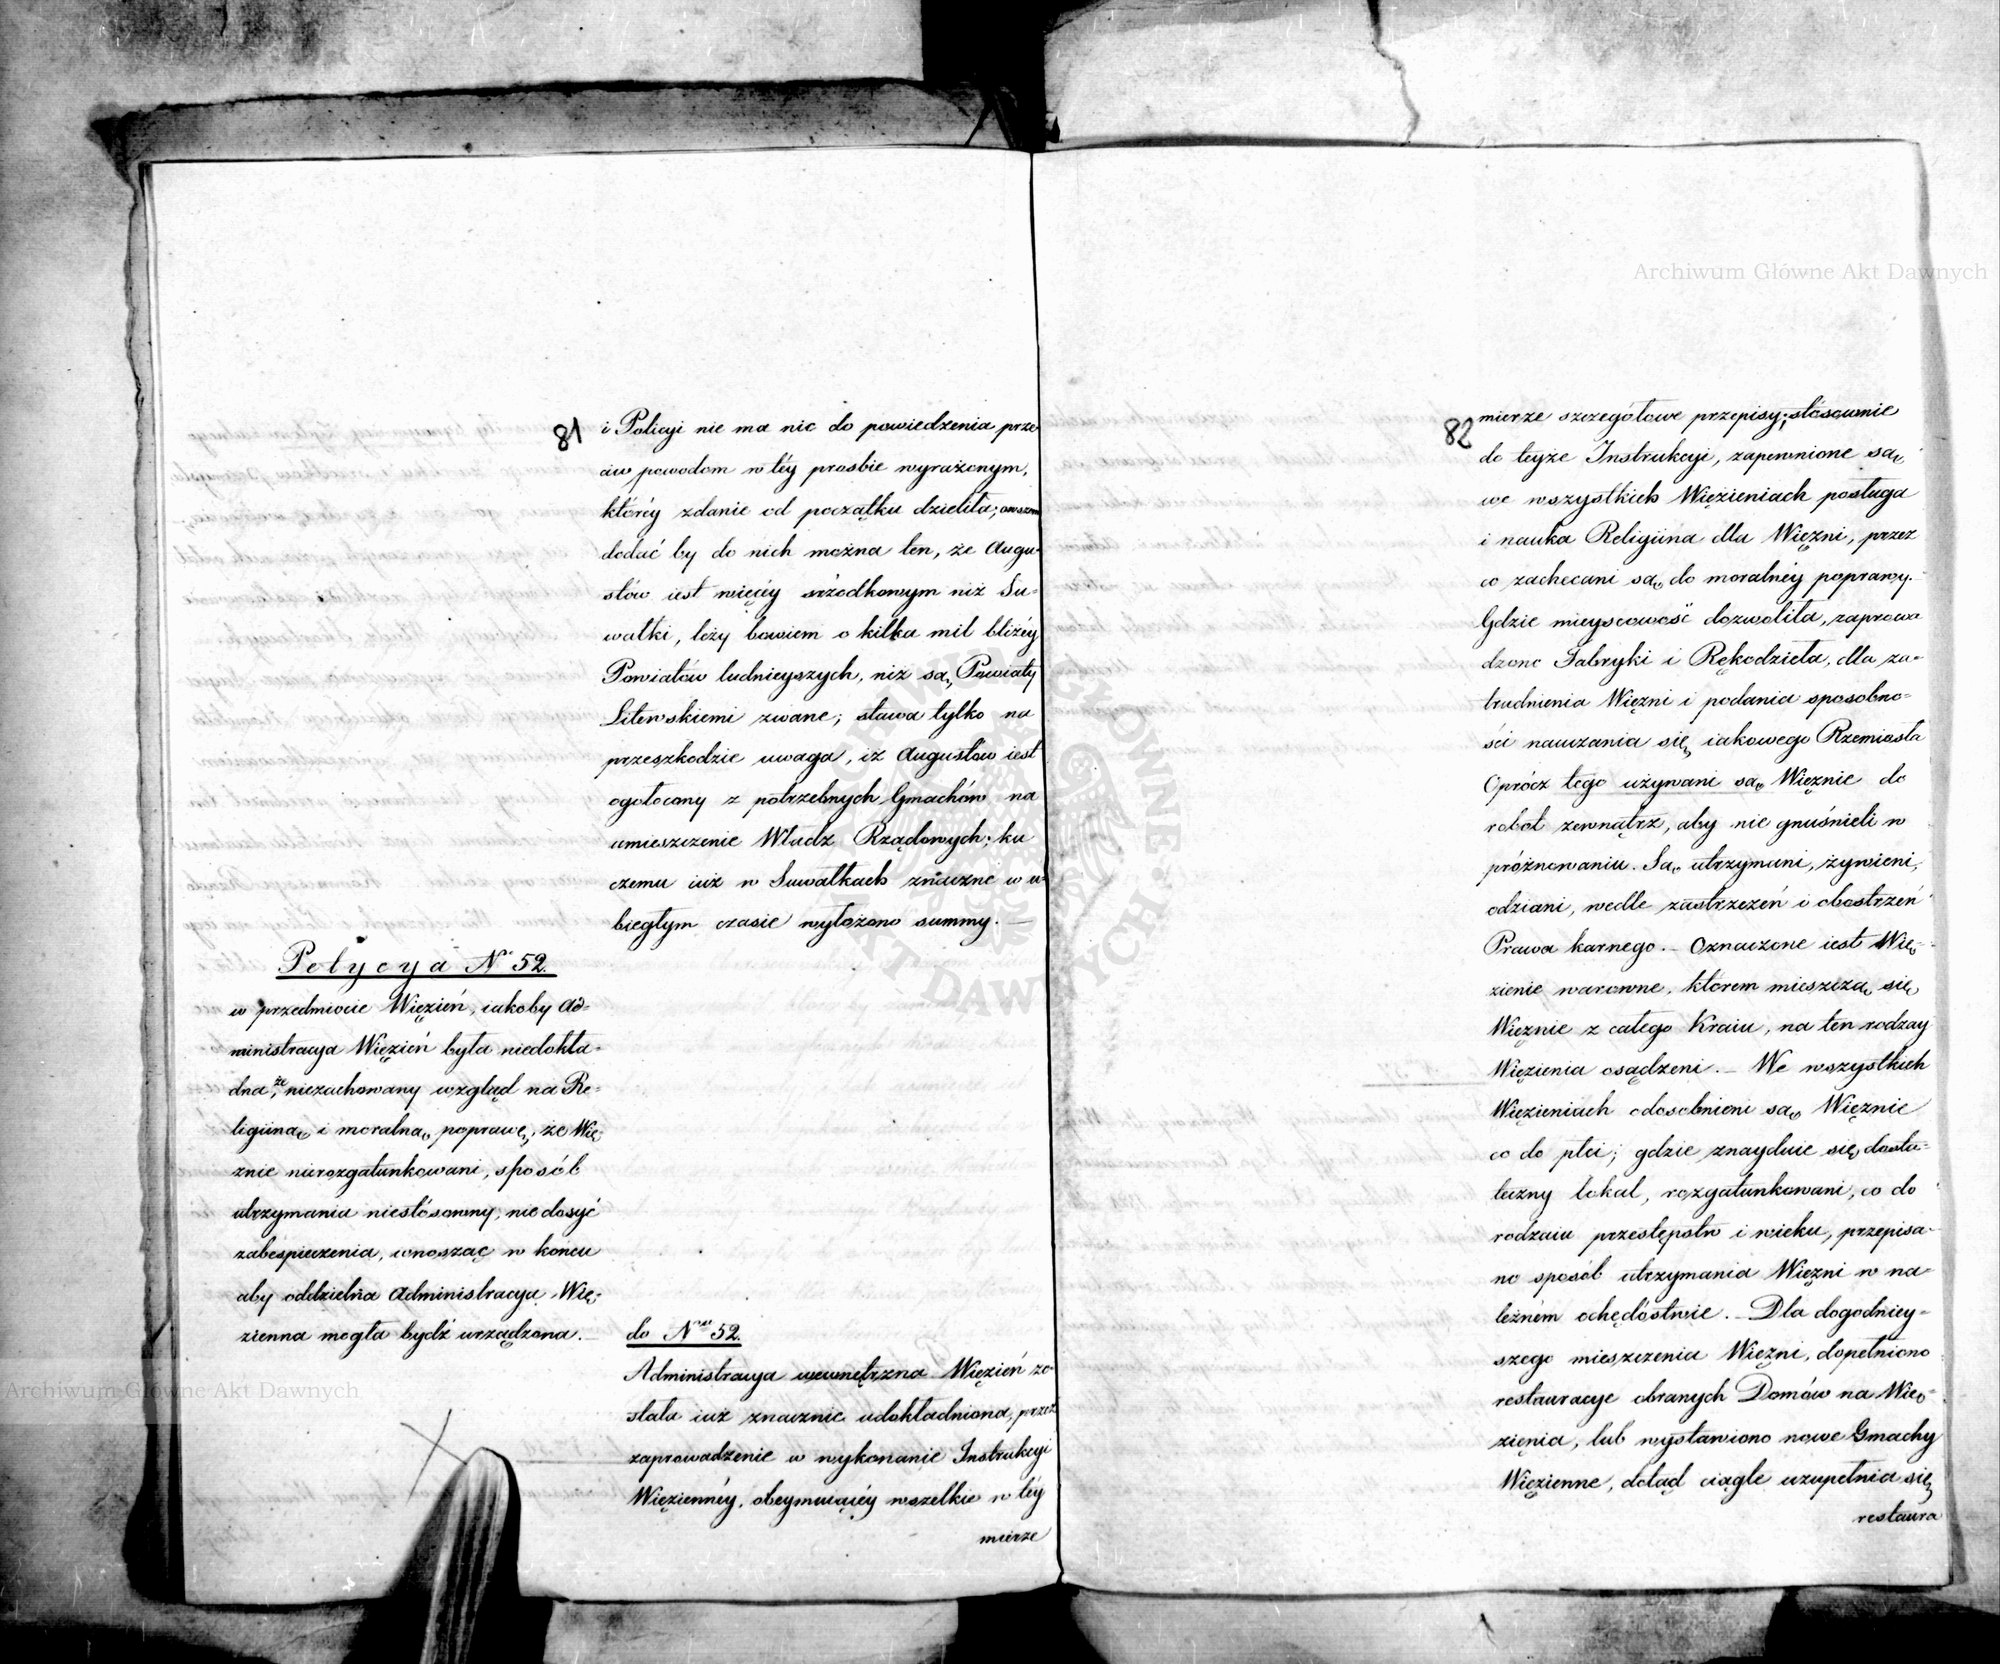 81
i Policyi nie ma nic do powiedzenia prze
ciw powodom w téy prosbie wyrażonym,
któréy zdanie od początku dzieliła; owszem
dodać by do nich można ten, że Augu-
stów iest więcéy srzodkowym niż Su-
wałki, leży bowiem o kilka mil bliżéy
Powiatów ludnieyszych, niż są, Powiaty
Litewskiemi zwane; stawa tylko na
przeszkodzie uwaga, iż Augustów iest
ogołocony z potrzebnych Gmachów na
umieszczenie Władz Rządowych; ku
czemu iuż w Suwałkach znaczne w u-
biegłym czasie wyłożono summy. —
Petycya No 52.
w przedmiocie Więzień, iakoby Ad-
ministracya Więzień była niedokła-
dna, że niezachowany wzgląd na Re-
ligiiną i moralną poprawę, że Wię-
znie nierozgatunkowani, sposób
utrzymania niestósowny, nie dosyć
zabespieczenia, wnosząc w końcu
aby oddzielna Administracya Wię-
zienna mogła bydź urządzona. —
do Nru 52.
Administracya wewnętrzna Więzień zo-
stała iuż znacznie udokładniona, przez
zaprowadzenie w wykonanie Instrukcyi
Więziennéy, obeymuiącéy wszelkie w téy
mierze
82
mierze szczegółowe przepisy; stósownie
do teyże Instrukcyi, zapewnione są,
we wszystkich Więzieniach posługa
i nauka Religiina dla Więzni, przez
co zachęcani są, do moralnéy poprawy. —
Gdzie mieyscowość dozwoliła, zaprowa
dzono Fabryki i Rękodzieła, dla za-
trudnienia Więzni i podania sposobno-
ści nauczania się, iakowego Rzemiosła
Oprócz tego używani są Więznie do
robot zewnątrz, aby nie gnuśnieli w
próżnowaniu. Są utrzymani, żywieni,
odziani, wedle zastrzeżeń i obostrzeń
Prawa karnego. — Oznaczone iest Wię-
zienie warowne, którem mieszczą się,
Więznie z całego Kraiu, na ten rodzay
Więzienia osądzeni. — We wszystkich
Więzieniach odosobnieni są Więznie
co do płci; gdzie znayduie się, dosta-
teczny lokal, rozgatunkowani, co do
rodzaiu przestępstw i wieku, przepisa-
no sposób utrzymania Więzni w na-
leżném ochędóstwie. — Dla dogodniey-
szego mieszczenia Więzni, dopełniono
restauracye obranych Domów na Wię-
zienia, lub wystawiono nowe Gmachy
Więzienne, dotąd ciągle uzupełnia się,
restaura
Archiwum Główne Akt Dawnych
Archiwum Główne Akt Dawnych